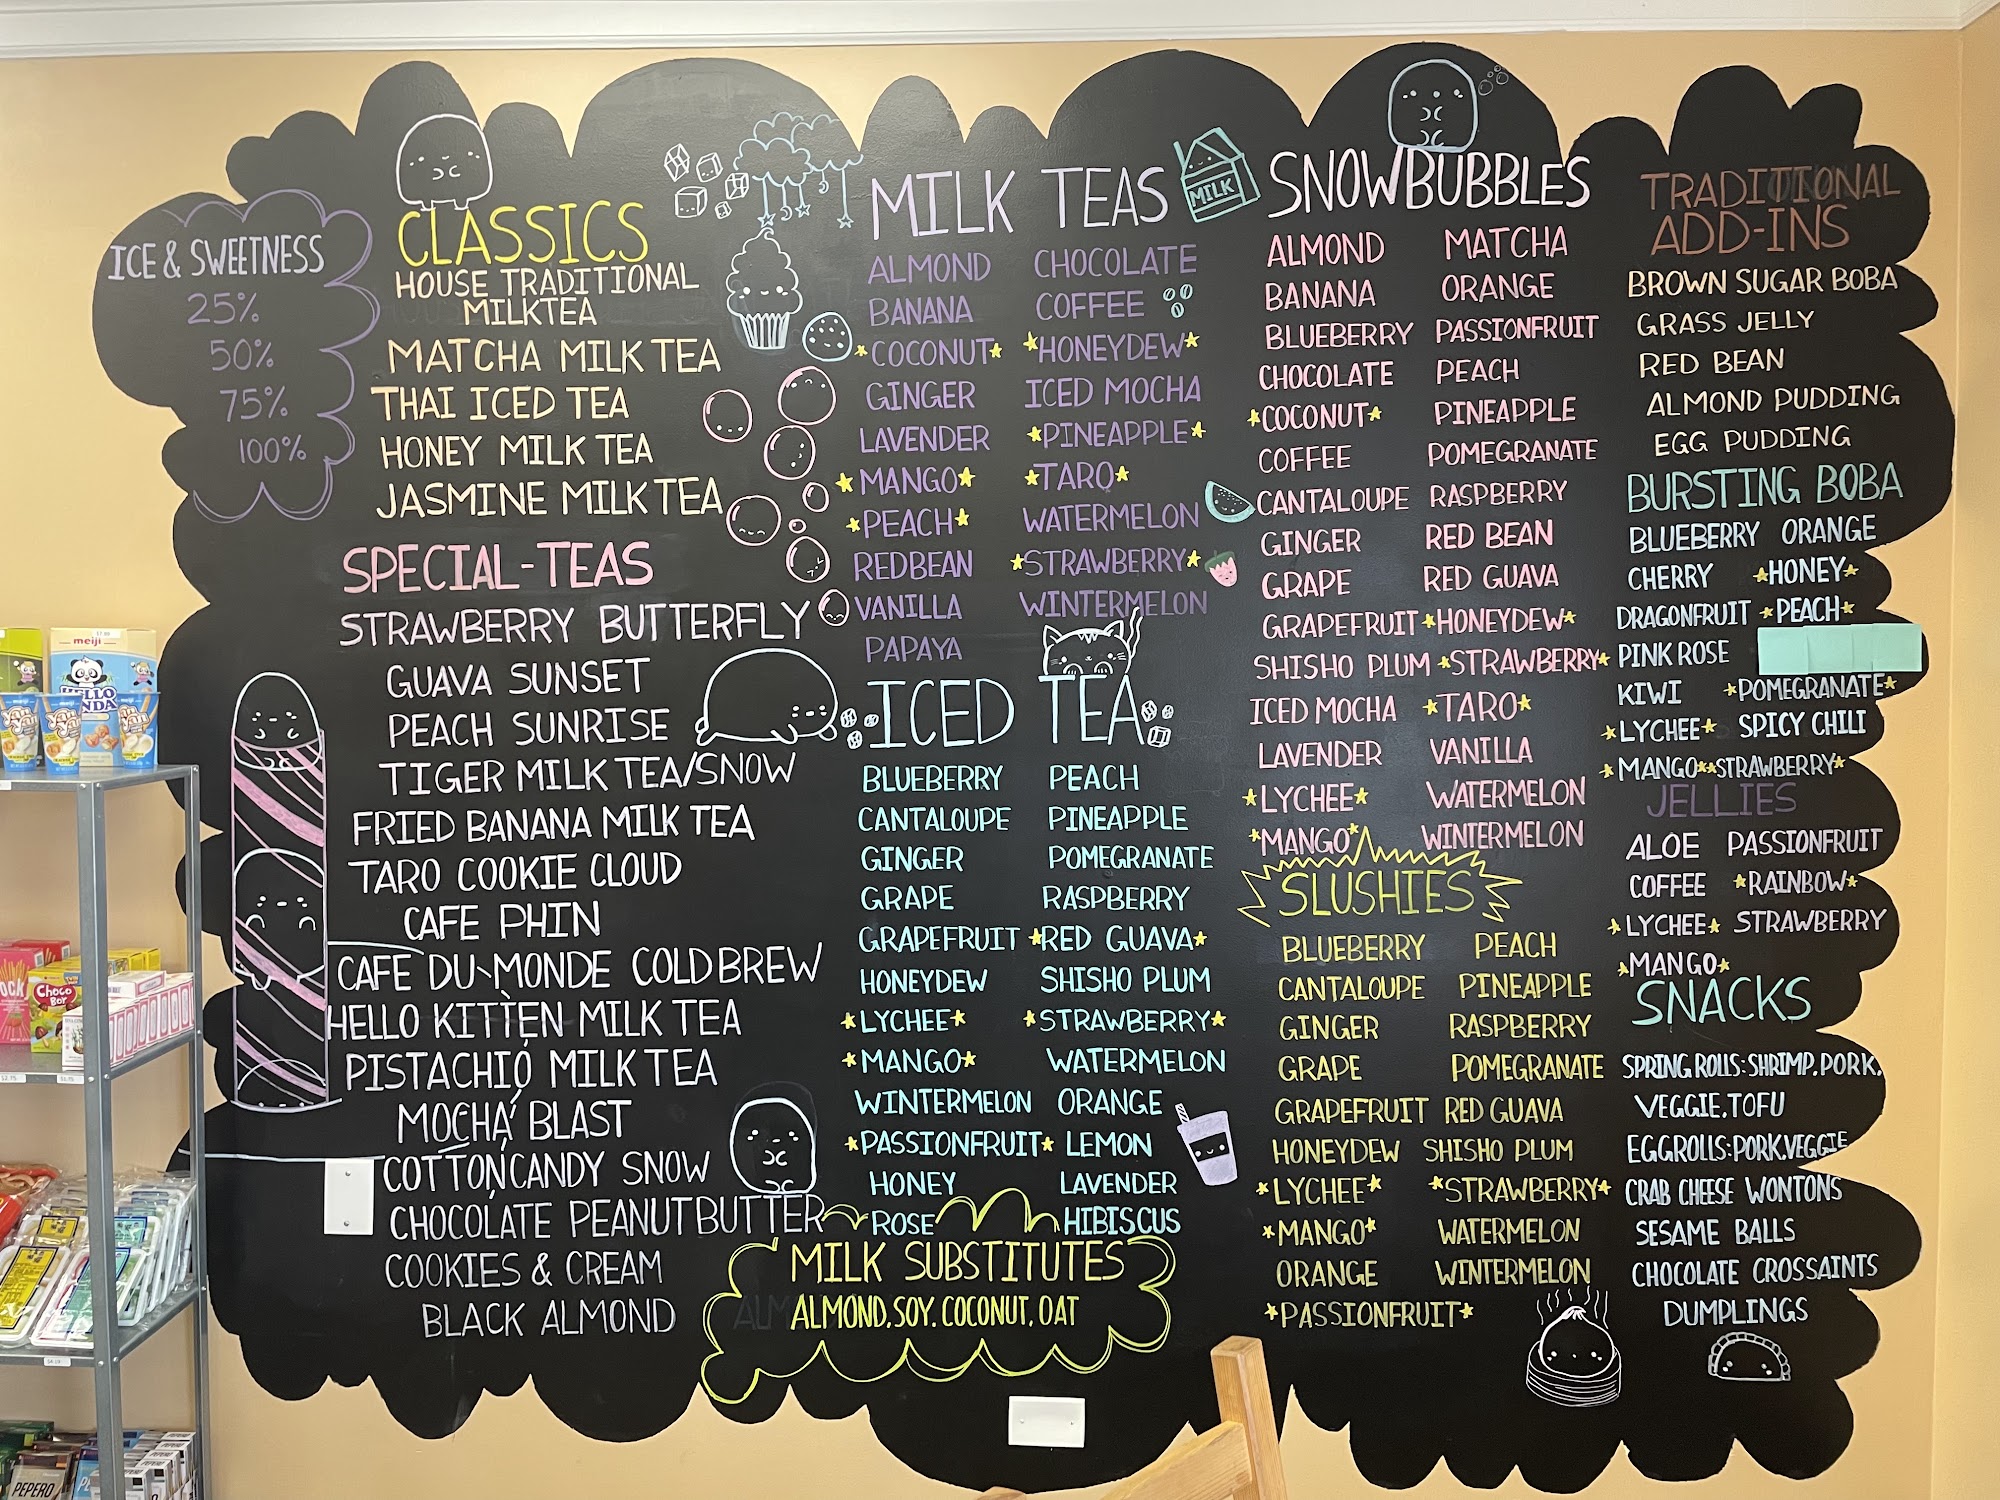 ICE & SWEETNESS
25%
50%
75%
100%
CLASSICS
HOUSE TRADITIONAL
MILKTEA
MATCHA MILK TEA
THAI ICED TEA
HONEY MILK TEA
JASMINE MILK TEA
SPECIAL-TEAS
STRAWBERRY BUTTERFLY
GUAVA SUNSET
PEACH SUNRISE
TIGER MILK TEA/SNOW
FRIED BANANA MILK TEA
TARO COOKIE CLOUD
CAFE PHIN
CAFE DU MONDE COLD BREW
HELLO KITTEN MILK TEA
PISTACHIO MILK TEA
MOCHA BLAST
COTTON CANDY SNOW
CHOCOLATE PEANUT BUTTER
COOKIES & CREAM
BLACK ALMOND
MILK TEAS
MILK
ALMOND CHOCOLATE
BANANA COFFEE
*COCONUT* *HONEYDEW*
GINGER ICED MOCHA
LAVENDER *PINEAPPLE*
*MANGO* *TARO*
*PEACH* WATERMELON
REDBEAN *STRAWBERRY*
VANILLA WINTERMELON
PAPAYA
ICED TEA
BLUEBERRY PEACH
CANTALOUPE PINEAPPLE
GINGER POMEGRANATE
GRAPE RASPBERRY
GRAPEFRUIT *RED GUAVA*
HONEYDEW SHISHO PLUM
*LYCHEE* *STRAWBERRY*
*MANGO* WATERMELON
WINTERMELON ORANGE
*PASSIONFRUIT* LEMON
HONEY LAVENDER
ROSE HIBISCUS
MILK SUBSTITUTES
ALMOND, SOY, COCONUT, OAT
SNOWBUBBLES
ALMOND MATCHA
BANANA ORANGE
BLUEBERRY PASSIONFRUIT
CHOCOLATE PEACH
*COCONUT* PINEAPPLE
COFFEE POMEGRANATE
CANTALOUPE RASPBERRY
GINGER RED BEAN
GRAPE RED GUAVA
GRAPEFRUIT *HONEYDEW*
SHISHO PLUM *STRAWBERRY*
ICED MOCHA *TARO*
LAVENDER VANILLA
*LYCHEE* WATERMELON
*MANGO* WINTERMELON
SLUSHIES
BLUEBERRY PEACH
CANTALOUPE PINEAPPLE
GINGER RASPBERRY
GRAPE POMEGRANATE
GRAPEFRUIT RED GUAVA
HONEYDEW SHISHO PLUM
*LYCHEE* *STRAWBERRY*
*MANGO* WATERMELON
ORANGE WINTERMELON
*PASSIONFRUIT*
TRADITIONAL
ADD-INS
BROWN SUGAR BOBA
GRASS JELLY
RED BEAN
ALMOND PUDDING
EGG PUDDING
BURSTING BOBA
BLUEBERRY ORANGE
CHERRY *HONEY*
DRAGONFRUIT *PEACH*
PINK ROSE
KIWI *POMEGRANATE*
*LYCHEE* SPICY CHILI
*MANGO* *STRAWBERRY*
JELLIES
ALOE PASSIONFRUIT
COFFEE *RAINBOW*
*LYCHEE* STRAWBERRY
*MANGO*
SNACKS
SPRING ROLLS: SHRIMP, PORK,
VEGGIE, TOFU
EGGROLLS: PORK, VEGGIE
CRAB CHEESE WONTONS
SESAME BALLS
CHOCOLATE CROSSAINTS
DUMPLINGS
meiji
HELLO
PANDA
Choco
Boy
PEPERO